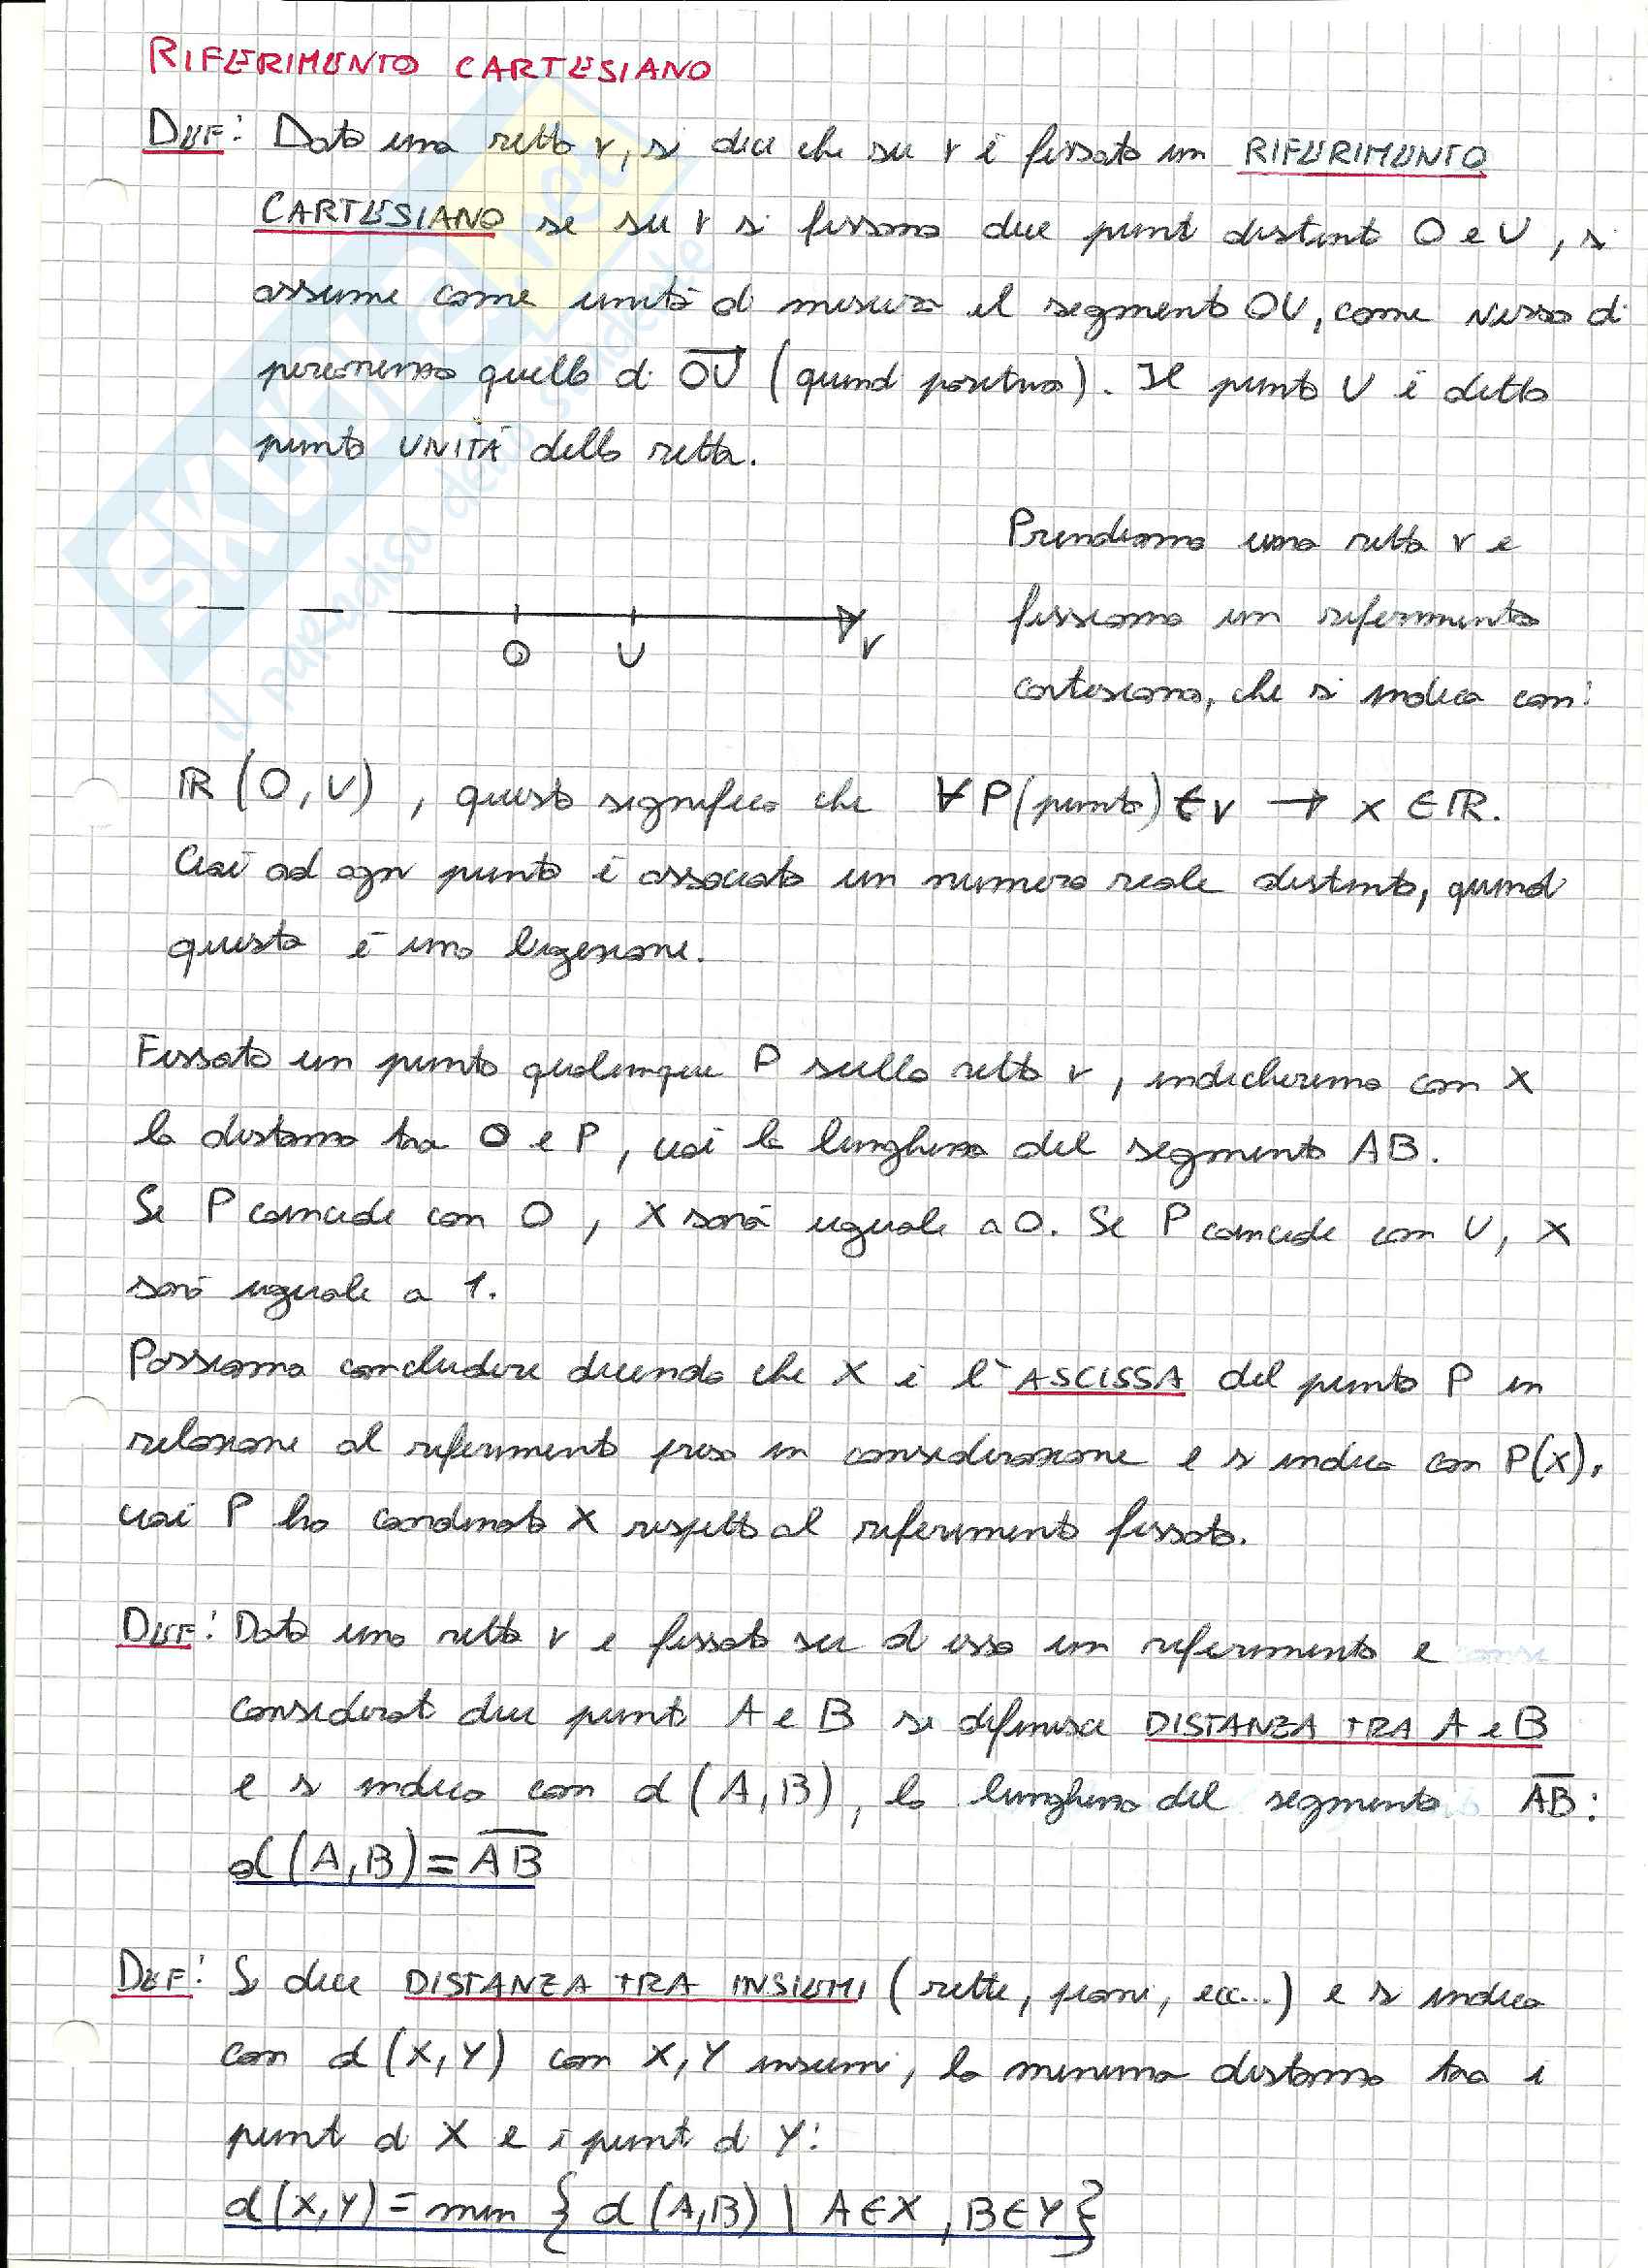 RIFERIMENTO CARTESIANO
DEF: Data una retta r, si dice che su r è fissato un RIFERIMENTO
CARTESIANO se su r si fissano due punti distinti O e U, si
assume come unità di misura il segmento OU, come verso di
percorrenza quello di OU (quindi positivo). Il punto U è detto
punto UNITÀ della retta.
Prendiamo una retta r e
fissiamo un riferimento
O U r
cartesiano, che si indica con:
R (O, U), questo significa che ∀ P (punto) ∈ r → x ∈ R.
Cioè ad ogni punto è associato un numero reale distinto, quindi
questa è una bigezione.
Fissato un punto qualunque P sulla retta r, indicheremo con x
la distanza tra O e P, cioè la lunghezza del segmento AB.
Se P coincide con O, x sarà uguale a 0. Se P coincide con U, x
sarà uguale a 1.
Possiamo concludere dicendo che x è l'ASCISSA del punto P in
relazione al riferimento preso in considerazione e si indica con P(x),
cioè P ha coordinata x rispetto al riferimento fissato.
DEF: Data una retta r e fissato su di essa un riferimento e
considerati due punti A e B si definisce DISTANZA TRA A e B
e si indica con d(A,B), la lunghezza del segmento A̅B̅:
d(A,B) = A̅B̅
DEF: Si dice DISTANZA TRA INSIEMI (rette, piani, ecc...) e si indica
con d(X,Y) con X,Y insiemi, la minima distanza tra i
punti di X e i punti di Y:
d(X,Y) = min { d(A,B) | A∈X, B∈Y }